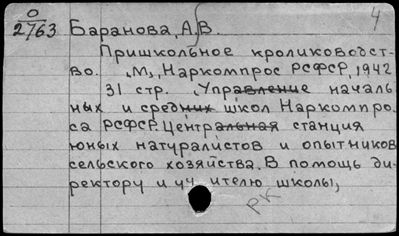 О
2763
4
Баранова, А.В.
Пришкольное кролиководст-
во. "М", Наркомпрос РСФСР, 1942
31 стр. "Управление началь-
ных и средних школ Наркомпро-
са РСФСР. Центральная станция
юных натуралистов и опытников
сельского хозяйства. В помощь ди-
ректору и уч ителю школы,
РК